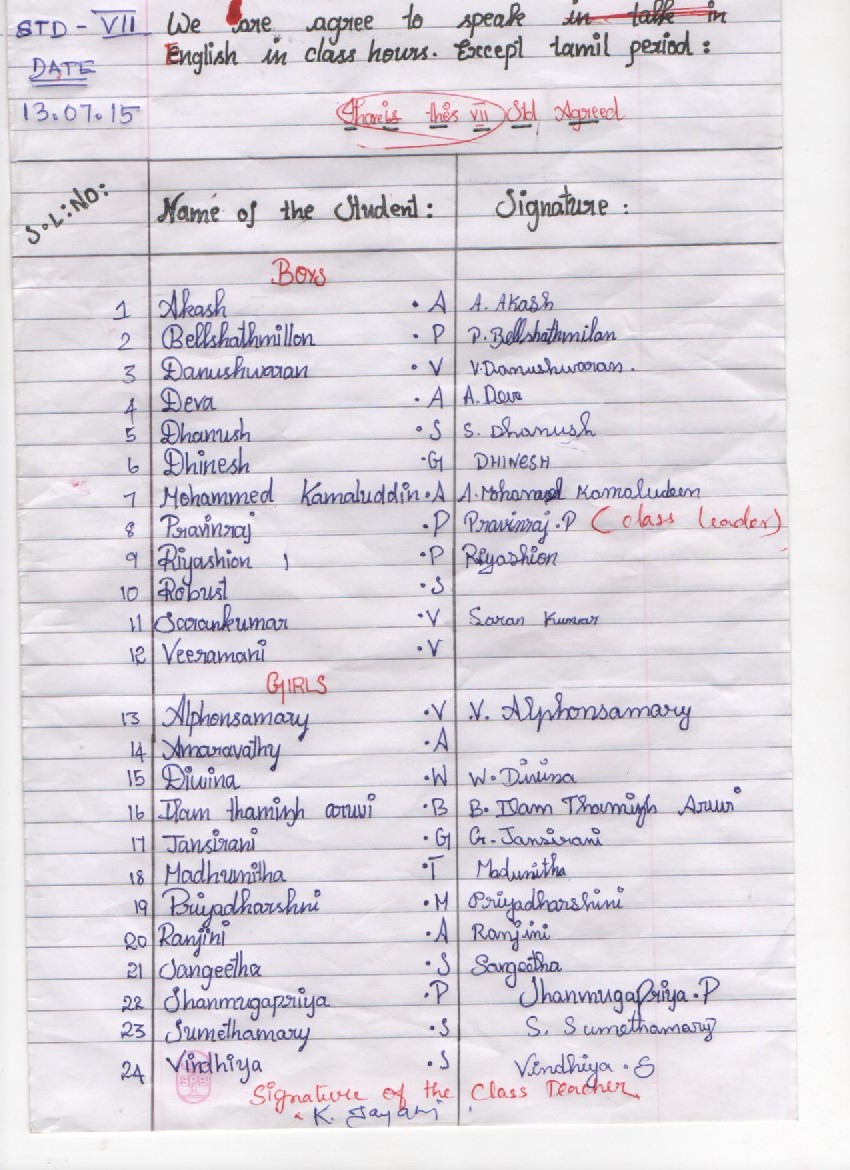 STD - VII We are agree to speak in talk in
DATE English in class hours. Except tamil period :
13.07.15 this VII Std Agreed
S.L:NO: Name of the Student : Signature :
Boys
1 Akash . A A. Akash
2 Bellshathmillon . P P. Bellshathmilan
3 Danushwaran . V V. Danushwaran.
4 Deva . A A. Deva
5 Dhanush . S S. Dhanush
6 Dhinesh . G DHINESH
7 Mohammed Kamaluddin . A A. Mohamed Kamaludeen
8 Pravinraj . P Pravinraj . P (class leader)
9 Riyashion . P Riyashion
10 Robust . S
11 Sarankumar . V Saran Kumar
12 Veeramani . V
GIRLS
13 Alphonsamary . V V. Alphonsamary
14 Amaravathy . A
15 Divina . W W. Divina
16 Ilam thamizh aruvi . B B. Ilam Thamizh Aruvi
17 Jansirani . G G. Jansirani
18 Madhunitha . T Madunitha
19 Priyadharshni . M Priyadharshini
20 Ranjini . A Ranjini
21 Sangeetha . S Sangeetha
22 Shanmugapriya . P Shanmugapriya . P
23 Sumethamary . S S. Sumethamary
24 Vindhiya . S Vindhiya . S
Signature of the Class Teacher
K.